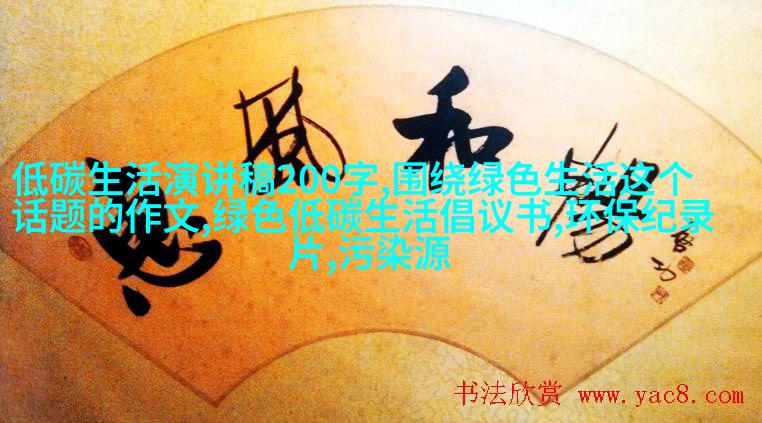 惠風和暢
启功
低碳生活演讲稿200字,围绕绿色生活这个
话题的作文,绿色低碳生活倡议书,环保纪录
片,污染源
书法欣赏 www.yac8.com